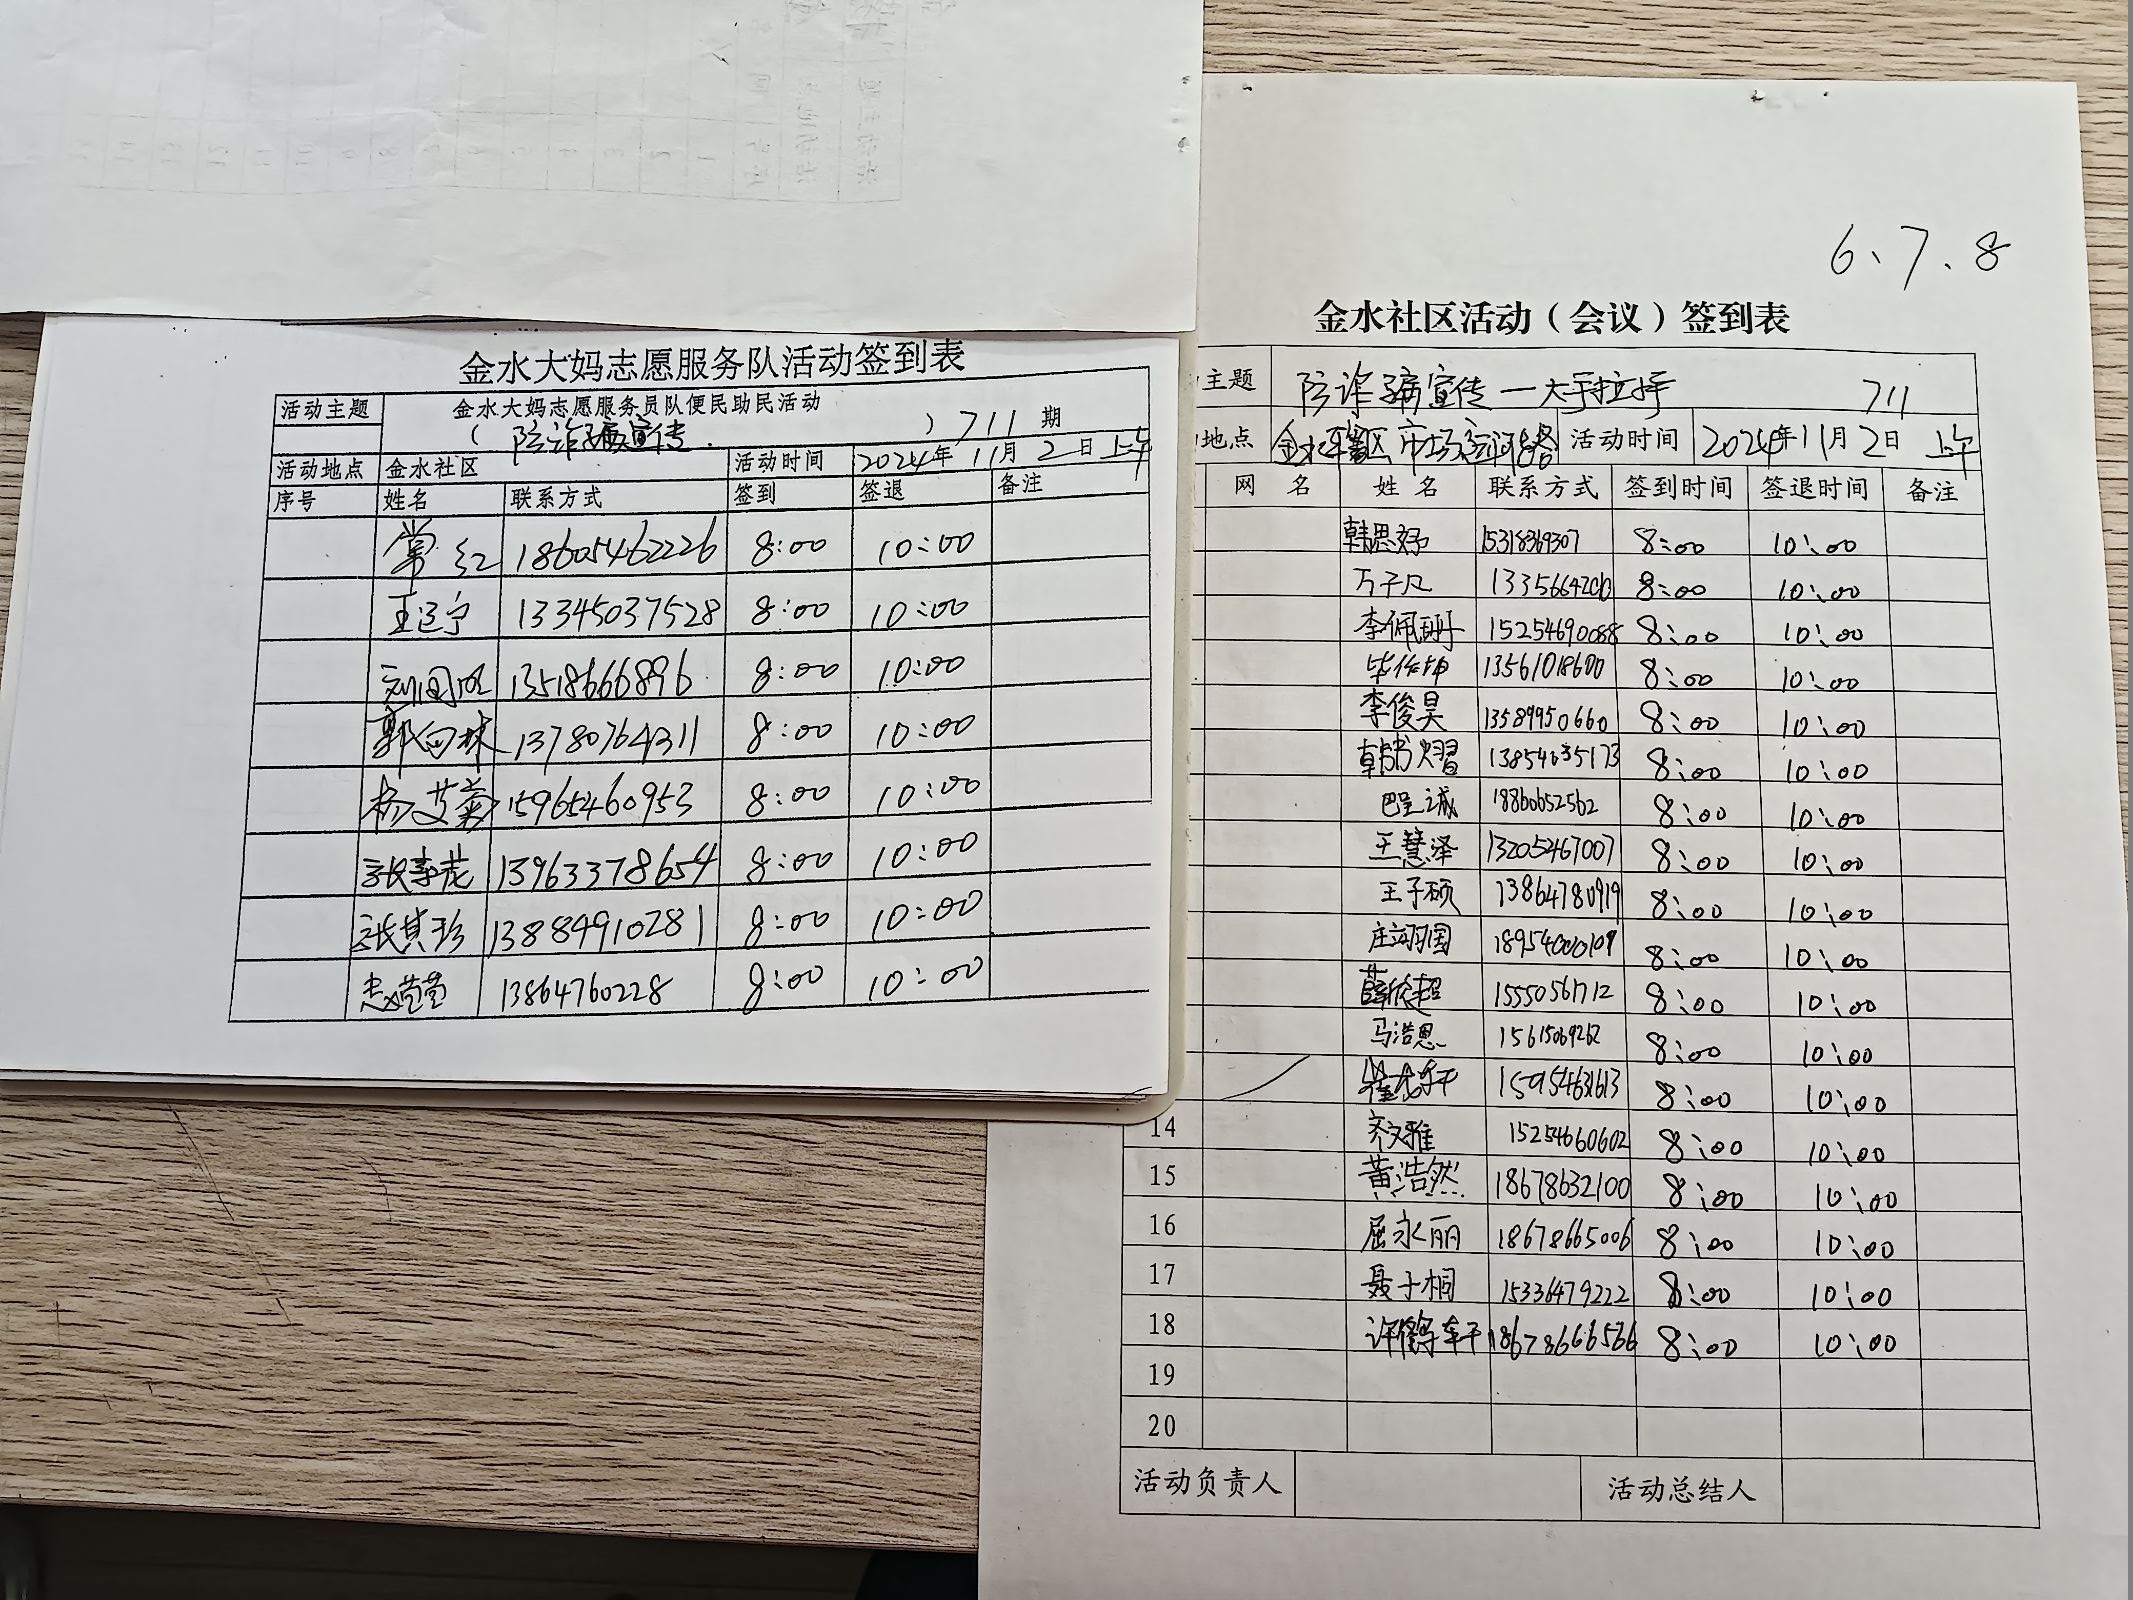 金水大妈志愿服务队活动签到表
活动主题 金水大妈志愿服务员队便民助民活动
（ 防诈骗宣传 ） 711 期
活动地点 金水社区 活动时间 2024年11月2日 上午
序号 姓名 联系方式 签到 签退 备注
常红 18605462226 8:00 10:00
13345037528 8:00 10:00
13518666896 8:00 10:00
13780764311 8:00 10:00
杨艾菊 15965460953 8:00 10:00
13963378654 8:00 10:00
张其珍 13884910281 8:00 10:00
13864760228 8:00 10:00
6、7、8
金水社区活动（会议）签到表
主题 防诈骗宣传—大手拉小手 711
地点 活动时间 2024年11月2日 上午
网 名 姓 名 联系方式 签到时间 签退时间 备注
韩思妤 15318369307 8:00 10:00
万子凡 8:00 10:00
李佩玥 15254690088 8:00 10:00
毕作坤 13561018600 8:00 10:00
李俊昊 13589950660 8:00 10:00
韩书熠 13854635173 8:00 10:00
18860652562 8:00 10:00
王慧泽 13205467007 8:00 10:00
王子硕 13864780919 8:00 10:00
8:00 10:00
薛欣超 15550561712 8:00 10:00
马浩恩 8:00 10:00
8:00 10:00
14 齐文雅 15254660602 8:00 10:00
15 黄浩然 18678632100 8:00 10:00
16 屈永丽 18678665006 8:00 10:00
17 聂子桐 15336479222 8:00 10:00
18 许鹤轩 18678666566 8:00 10:00
19
20
活动负责人 活动总结人